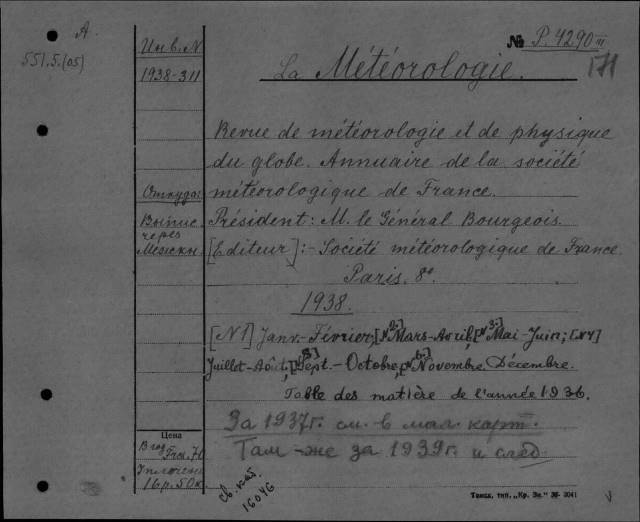 A.
551.5.(05)
Инв. N
1938-311
№ P. 4290 III
171
La Météorologie.
Revue de météorologie et de physique
du globe. Annuaire de la société
Откуда: météorologique de France.
Выпис. Président: M. le Général Bourgeois.
через
Межкн. [Editeur]:- Société météorologique de France.
Paris. 8°
1938.
[N1] Janv.-Février, [N2-] Mars-Avril, [N3-] Mai-Juin; [N4]
Juillet-Août, [N5] Sept.-Octobre, [N6-] Novembre Décembre.
Table des matière de l'année 1936.
За 1937г. см. в мал. карт.
Там-же за 1939г. и след.
Цена
В год
Frcs. 70
Уплочено
16 р. 50к.
св. кат.
16046
Томск, тип. „Кр. Зн." 38- 3041
V